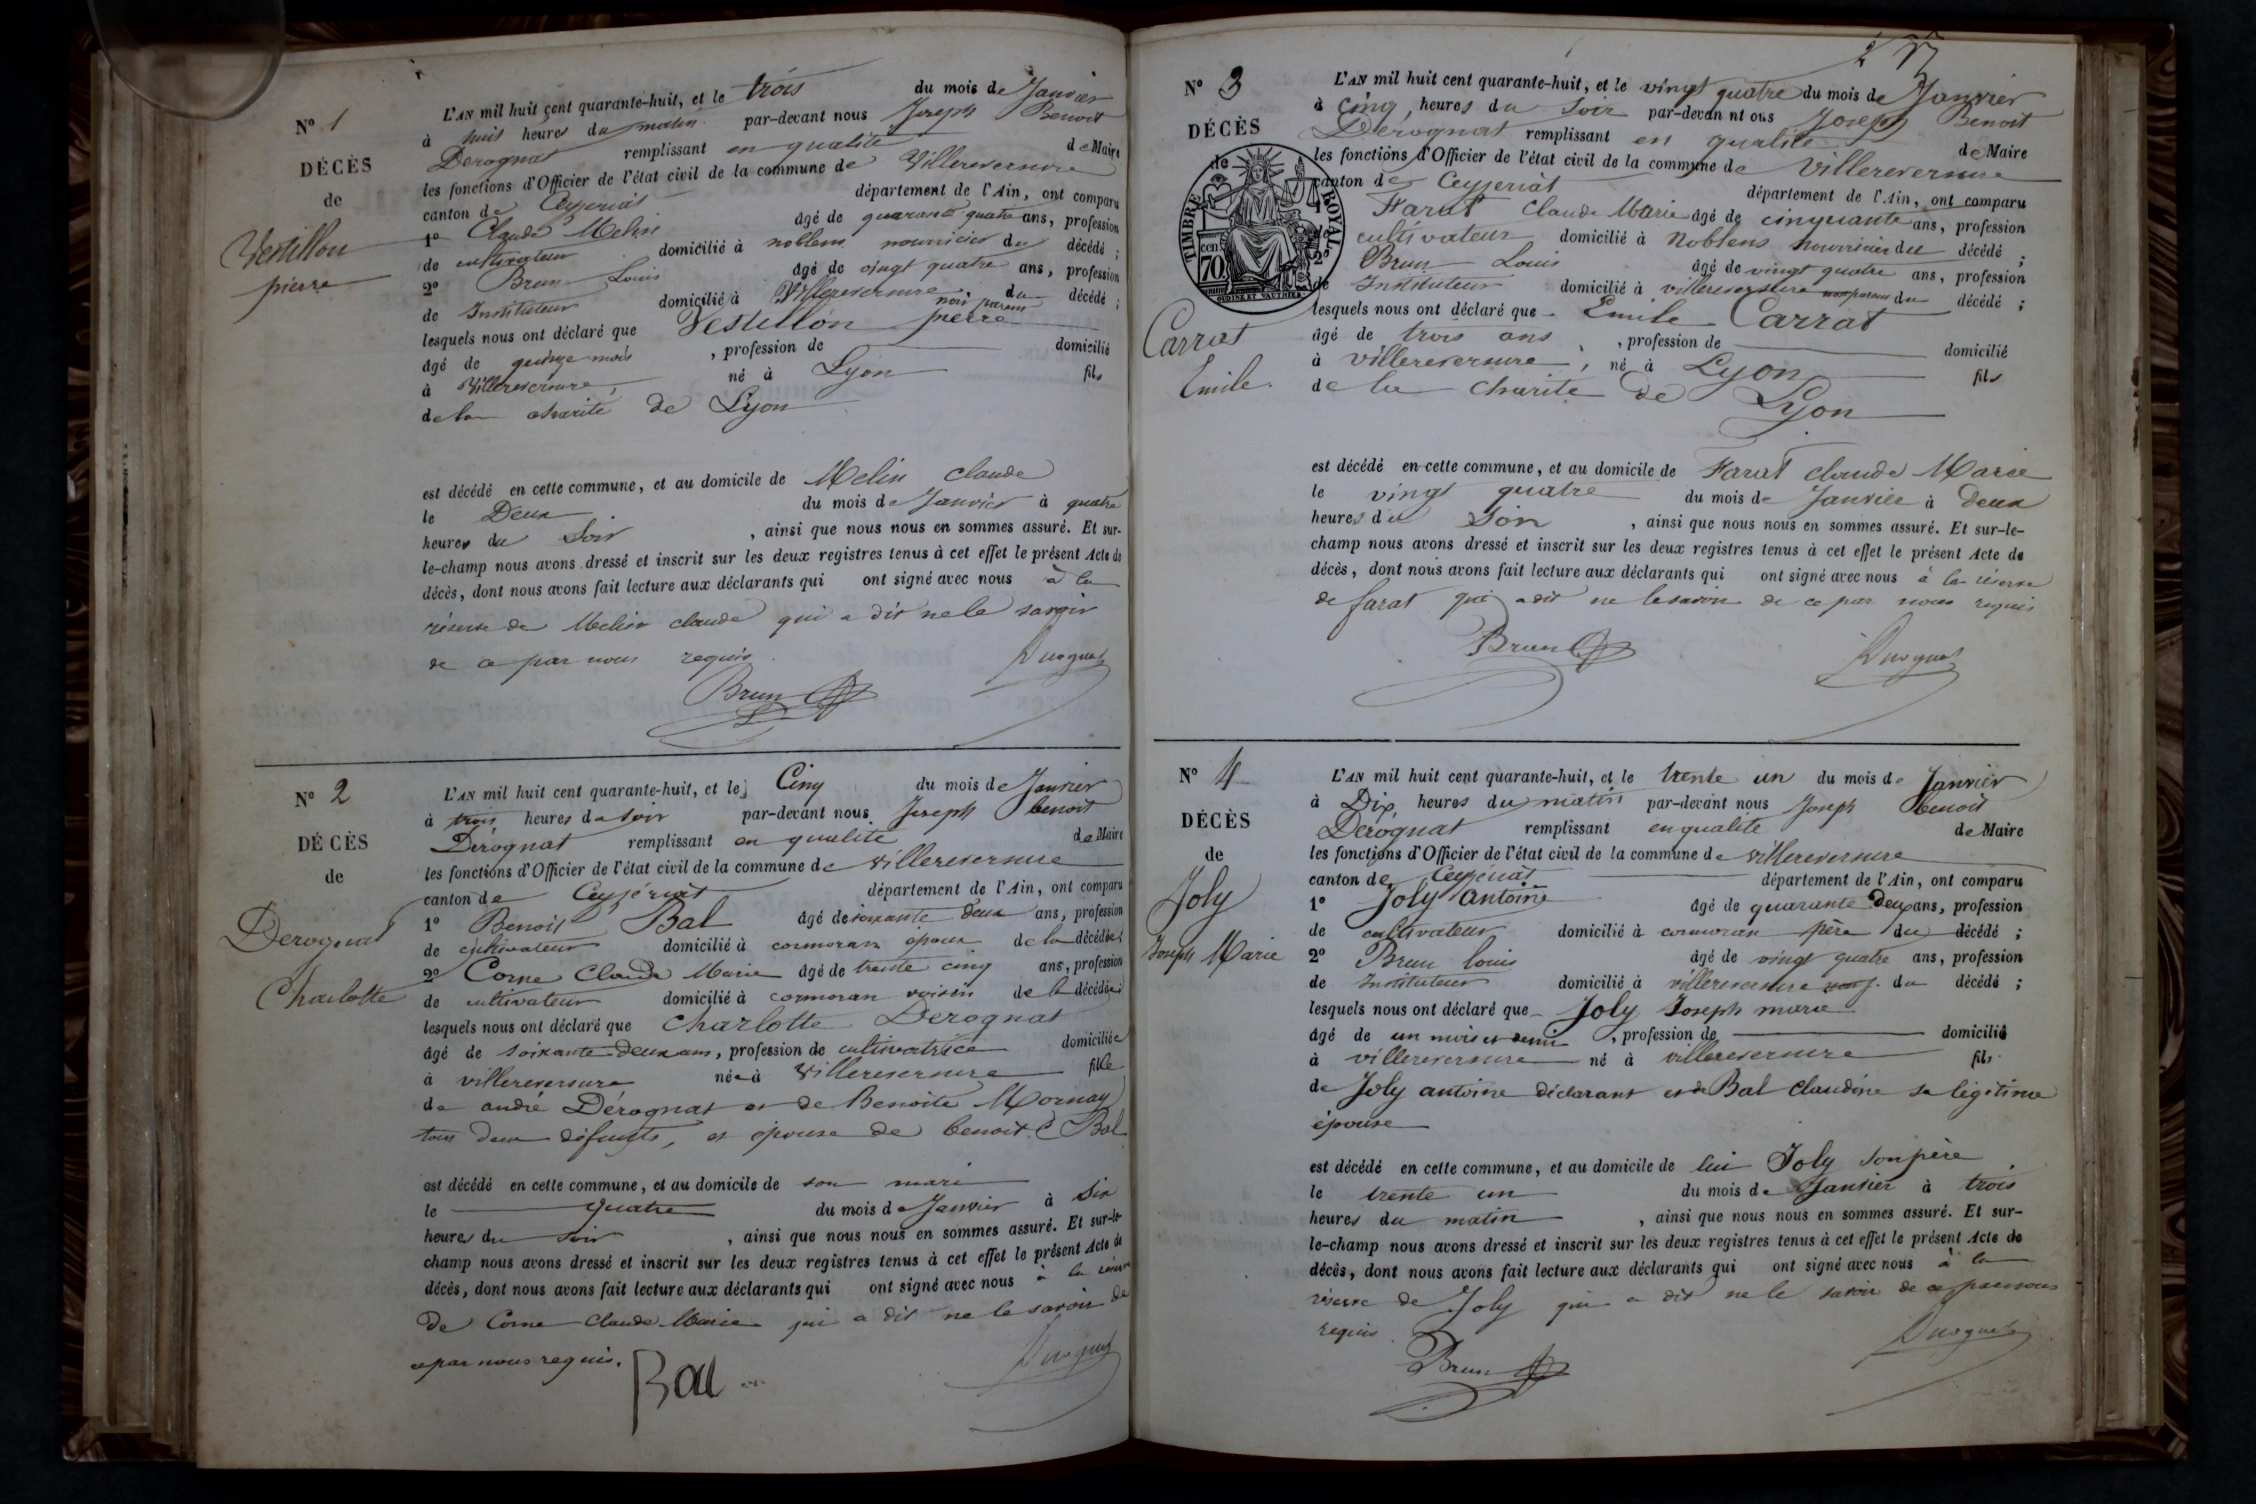 N° 1
DÉCÈS
de
Vestillon
pierre
L'AN mil huit cent quarante-huit, et le trois du mois de Janvier
à huit heures du matin par-devant nous Joseph Benoit
Derognat remplissant en qualité de Maire
les fonctions d'Officier de l'état civil de la commune de Villereversure
canton de Ceyzeriat département de l'Ain, ont comparu
1° Claude Melin âgé de quarante quatre ans, profession
de cultivateur domicilié à noblens nourricier du décédé ;
2° Brun Louis âgé de vingt quatre ans, profession
de Instituteur domicilié à Villereversure, non parent du décédé ;
lesquels nous ont déclaré que Vestillon pierre
âgé de quinze mois , profession de domicilié
à Villereversure, né à Lyon fils
de la charité de Lyon
est décédé en cette commune, et au domicile de Melin claude
le Deux du mois de Janvier à quatre
heures du Soir , ainsi que nous nous en sommes assuré. Et sur-
le-champ nous avons dressé et inscrit sur les deux registres tenus à cet effet le présent Acte de
décès, dont nous avons fait lecture aux déclarants qui ont signé avec nous à la
réserve de Melin claude qui a dit ne le savoir
de ce par nous requis
Brun Derognat
N° 2
DÉCÈS
de
Derognat
Charlotte
L'AN mil huit cent quarante-huit, et le Cinq du mois de Janvier
à trois heures du soir par-devant nous Joseph benoit
Dérognat remplissant en qualité de Maire
les fonctions d'Officier de l'état civil de la commune de villereversure
canton de Ceyzériat département de l'Ain, ont comparu
1° Benoit Bal âgé de soixante deux ans, profession
de cultivateur domicilié à cormoran époux de la décédée ;
2° Corne Claude Marie âgé de trente cinq ans, profession
de cultivateur domicilié à cormoran voisin de la décédée ;
lesquels nous ont déclaré que Charlotte Derognat
âgé de soixante deux ans, profession de cultivatrice domiciliée
à villereversure née à villereversure fille
de andré Dérognat et de Benoite Mornay
tous deux défunts, et épouse de benoit Bal
est décédé en cette commune, et au domicile de son mari
le quatre du mois de Janvier à Six
heures du soir , ainsi que nous nous en sommes assuré. Et sur-le-
champ nous avons dressé et inscrit sur les deux registres tenus à cet effet le présent Acte de
décès, dont nous avons fait lecture aux déclarants qui ont signé avec nous à la réserve
De Corne Claude Marie qui a dit ne le savoir de
ce par nous requis.
Bal Derognat
N° 3
DÉCÈS
de
TIMBRE ROYAL
70 cen
OUDINE ET VAUTHIER
Carrat
Emile
L'AN mil huit cent quarante-huit, et le vingt quatre du mois de Janvier
à cinq heures du soir par-devan nt ous Joseph Benoit
Dérognat remplissant en qualité de Maire
les fonctions d'Officier de l'état civil de la commune de villereversure
canton de Ceyzeriat département de l'Ain, ont comparu
1° Farat Claude Marie âgé de cinquante ans, profession
de cultivateur domicilié à Noblens nourricier du décédé ;
2° Brun Louis âgé de vingt quatre ans, profession
de Instituteur domicilié à villereversure non parent du décédé ;
lesquels nous ont déclaré que Emile Carrat
âgé de trois ans , profession de domicilié
à villereversure, né à Lyon fils
de la charité de Lyon
est décédé en cette commune, et au domicile de Farat claude Marie
le vingt quatre du mois de Janvier à deux
heures du Soir , ainsi que nous nous en sommes assuré. Et sur-le-
champ nous avons dressé et inscrit sur les deux registres tenus à cet effet le présent Acte de
décès, dont nous avons fait lecture aux déclarants qui ont signé avec nous à la réserve
de farat qui a dit ne le savoir de ce par nous requis
Brun Derognat
N° 4
DÉCÈS
de
Joly
Joseph Marie
L'AN mil huit cent quarante-huit, et le trente un du mois de Janvier
à Dix heures du matin par-devant nous Joseph benoit
Derognat remplissant en qualité de Maire
les fonctions d'Officier de l'état civil de la commune de villereversure
canton de Ceyzériat département de l'Ain, ont comparu
1° Joly antoine âgé de quarante Deux ans, profession
de cultivateur domicilié à cormoran père du décédé ;
2° Brun louis âgé de vingt quatre ans, profession
de Instituteur domicilié à villereversure du décédé ;
lesquels nous ont déclaré que Joly Joseph marie
âgé de un mois et demi , profession de domicilié
à villereversure né à villereversure fils
de Joly antoine déclarant et de Bal claudine sa légitime
épouse
est décédé en cette commune, et au domicile de lui Joly son père
le trente un du mois de Janvier à trois
heures du matin , ainsi que nous nous en sommes assuré. Et sur-
le-champ nous avons dressé et inscrit sur les deux registres tenus à cet effet le présent Acte de
décès, dont nous avons fait lecture aux déclarants qui ont signé avec nous à la
réserve de Joly qui a dit ne le savoir de ce par nous
requis.
Brun Derognat